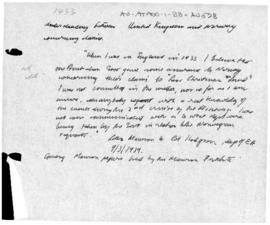 1933
AU-ATADD-1-BB-AU578
Understanding between United Kingdom and Norway
concerning claims.
"When I was in England in 1933 I believe the
Govt gave some assurance to Norway
concerning their claims to Lars Christensen Land
I was not consulted in the matter, nor as far as I am
aware, was anybody with a real knowledge of
the coasts during the 2nd cruise of the Discovery. I was
not even communicated with as to what steps were
being taken by the Govt in relation to the Norwegian
requests."
Letter Mawson to Col Hodgson, Dept of EA
9/3/1939.
Mawson papers held by the Mawson Institute